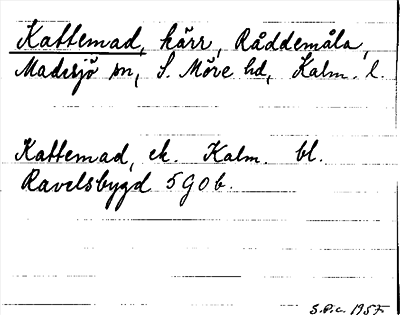 Kattemad, kärr, Råddemåla,
Madesjö sn, S. Möre hd, Kalm. l.
Kattemad, ek. Kalm. bl.
Ravelsbygd 5 G 0 b.
S.P.c. 1957